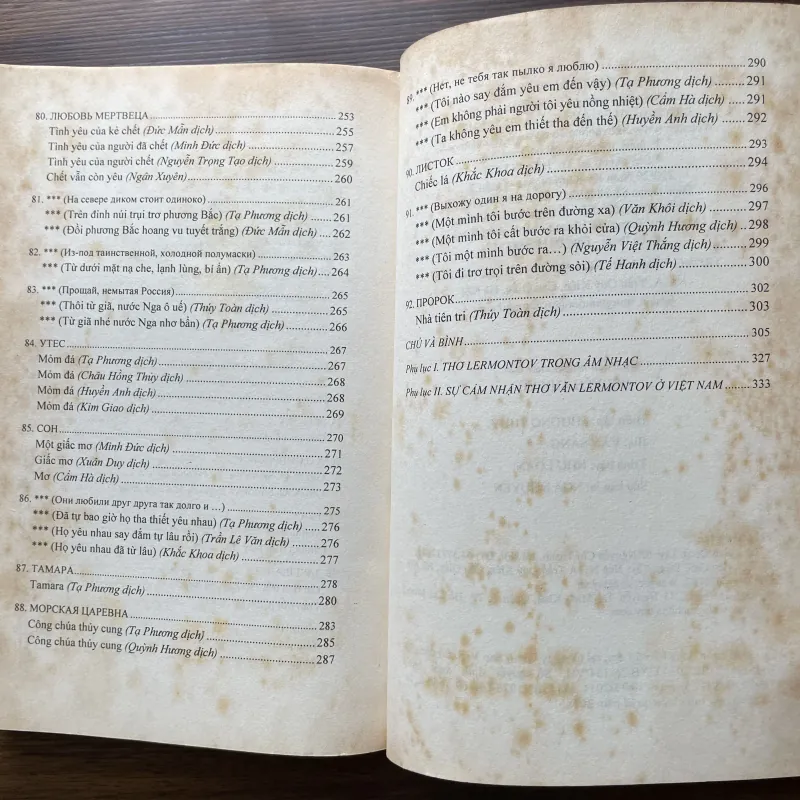 80. ЛЮБОВЬ МЕРТВЕЦА ........ 253
Tình yêu của kẻ chết (Đức Mẫn dịch) ........ 255
Tình yêu của người đã chết (Minh Đức dịch) ........ 257
Tình yêu của người chết (Nguyễn Trọng Tạo dịch) ........ 259
Chết vẫn còn yêu (Ngân Xuyên) ........ 260
81. *** (На севере диком стоит одиноко) ........ 261
*** (Trên đỉnh núi trụi trơ phương Bắc) (Tạ Phương dịch) ........ 261
*** (Đồi phương Bắc hoang vu tuyết trắng) (Đức Mẫn dịch) ........ 262
82. *** (Из-под таинственной, холодной полумаски) ........ 263
*** (Từ dưới mặt nạ che, lạnh lùng, bí ẩn) (Tạ Phương dịch) ........ 264
83. *** (Прощай, немытая Россия) ........ 265
*** (Thôi từ giã, nước Nga ô uế) (Thúy Toàn dịch) ........ 265
*** (Từ giã nhé nước Nga nhơ bẩn) (Tạ Phương dịch) ........ 266
84. УТЕС ........ 267
Mỏm đá (Tạ Phương dịch) ........ 267
Mỏm đá (Châu Hồng Thùy dịch) ........ 268
Mỏm đá (Huyền Anh dịch) ........ 268
Mỏm đá (Kim Giao dịch) ........ 269
85. СОН ........ 270
Một giấc mơ (Minh Đức dịch) ........ 271
Giấc mơ (Xuân Duy dịch) ........ 272
Mơ (Cẩm Hà dịch) ........ 273
86. *** (Они любили друг друга так долго и …) ........ 275
*** (Đã tự bao giờ họ tha thiết yêu nhau) (Tạ Phương dịch) ..... 276
*** (Họ yêu nhau say đắm tự lâu rồi) (Trần Lê Văn dịch) ..... 276
*** (Họ yêu nhau đã từ lâu) (Khắc Khoa dịch) ........ 277
87. ТАМАРА ........ 278
Tamara (Tạ Phương dịch) ........ 280
88. МОРСКАЯ ЦАРЕВНА ........ 283
Công chúa thủy cung (Tạ Phương dịch) ........ 285
Công chúa thủy cung (Quỳnh Hương dịch) ........ 287
89. *** (Нет, не тебя так пылко я люблю) ........ 290
*** (Tôi nào say đắm yêu em đến vậy) (Tạ Phương dịch) ........ 291
*** (Em không phải người tôi yêu nồng nhiệt) (Cẩm Hà dịch) ........ 291
*** (Ta không yêu em thiết tha đến thế) (Huyền Anh dịch) ........ 292
90. ЛИСТОК ........ 293
Chiếc lá (Khắc Khoa dịch) ........ 294
91. *** (Выхожу один я на дорогу) ........ 296
*** (Một mình tôi bước trên đường xa) (Văn Khôi dịch) ........ 297
*** (Một mình tôi cất bước ra khỏi cửa) (Quỳnh Hương dịch) .. 298
*** (Tôi một mình bước ra…) (Nguyễn Việt Thắng dịch) ........ 299
*** (Tôi đi trơ trọi trên đường sỏi) (Tế Hanh dịch) ........ 300
92. ПРОРОК ........ 302
Nhà tiên tri (Thúy Toàn dịch) ........ 303
CHÚ VÀ BÌNH ........ 305
Phụ lục I. THƠ LERMONTOV TRONG ÂM NHẠC ........ 327
Phụ lục II. SỰ CẢM NHẬN THƠ VĂN LERMONTOV Ở VIỆT NAM ........ 333